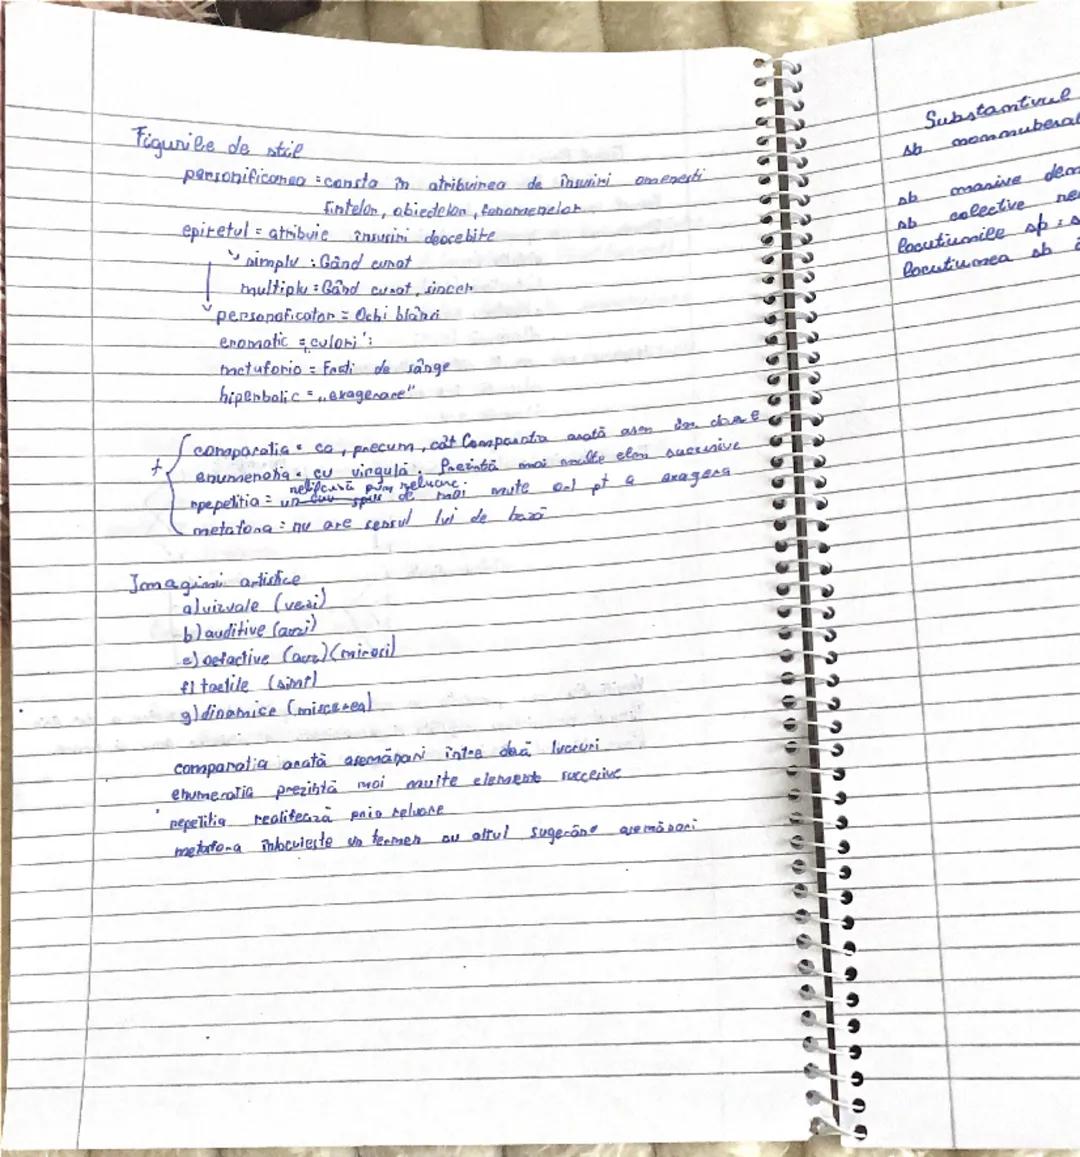 Figurile de stil
personificarea = consta în atribuirea de însușiri omenești
fintelor, obiectelor, fenomenelor
epitetul = atribuie însușiri deosebite
simplu : Gând curat
multiplu : Gând curat, sincer
personoficator = Ochi blânzi
cromatic = culori
metaforic = de sânge
hiperbolic = „exagerare"
+
comparatia = ca, precum, cât Comparatia arată asem în doua e
enumeratia = cu virgulă. Prezintă mai multe elem succesive
prin reluare.
repepetitia = de mai mute ori pt a exagera
metafora = nu are sensul lui de bază
Imagini artistice
a) vizuale (vezi)
b) auditive (auzi)
e) (miros)
f) tactile (simt)
g) dinamice (miscarea)
comparatia arată asemănari între două lucruri
enumeratia prezintă mai multe elemente succesive
repetitia prin reluare
metafora înlocuieste un termen cu altul asemănari
Substantivele
sb
sb masive
sb colective
locutiunile sb
locutiunea sb